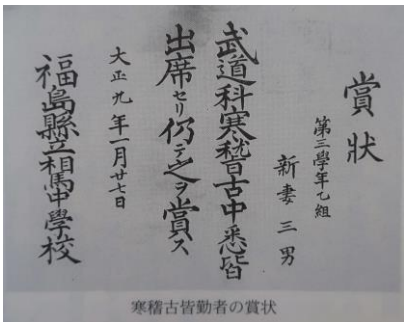 賞状
第三學年乙組
新妻三男
武道科寒稽古中悉皆
出席セリ仍テ之ヲ賞ス
大正九年一月廿七日
福島縣立相馬中學校
寒稽古皆勤者の賞状